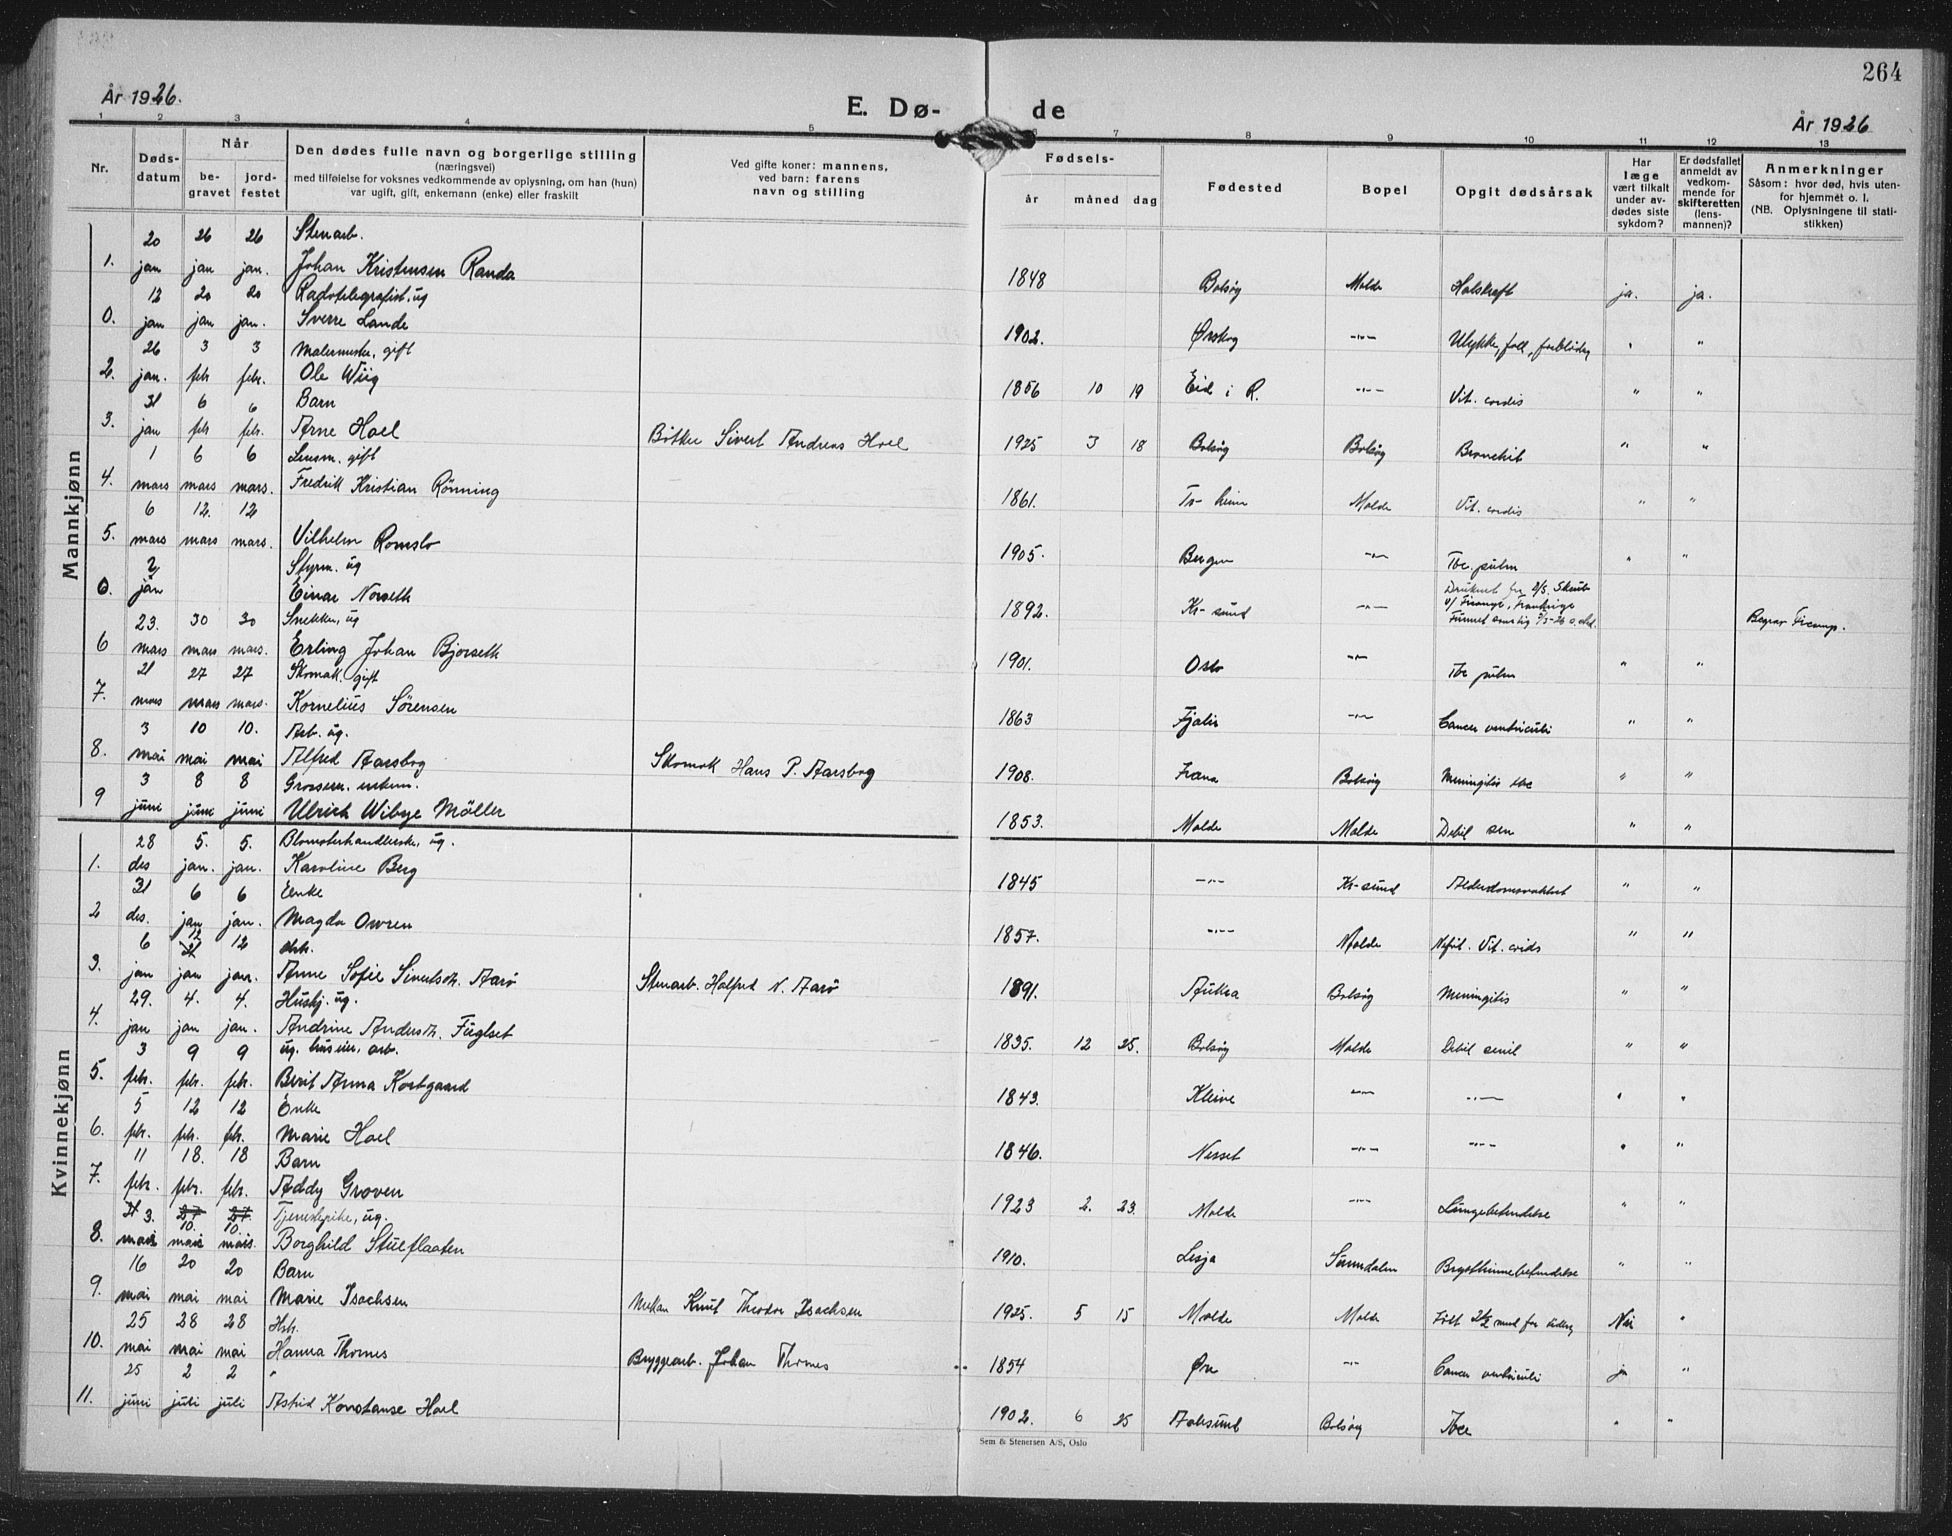 264
År 1926.
E. Dø- de
År 1926
1 2 3 4 5 6 7 8 9 10 11 12 13
Nr.
Døds-
datum
Når
be-
gravet
jord-
festet
Den dødes fulle navn og borgerlige stilling
(næringsvei)
med tilføielse for voksnes vedkommende av oplysning, om han (hun)
var ugift, gift, enkemann (enke) eller fraskilt
Ved gifte koner: mannens,
ved barn: farens
navn og stilling
Fødsels-
år måned dag
Fødested
Bopel
Opgit dødsårsak
Har
læge
vært tilkalt
under av-
dødes siste
sykdom?
Er dødsfallet
anmeldt av
vedkom-
mende for
skifteretten
(lens-
mannen)?
Anmerkninger
Såsom: hvor død, hvis uten-
for hjemmet o. l.
(NB. Oplysningene til stati-
stikken)
Mannkjønn
20 26 26 Stenarb.
1. jan jan jan. Johan Kristensen Randa 1848 Bolsøy Molde Halskræft ja. ja.
12 20 20 Radiotelegrafist, ug
0. jan jan jan. Sverre Lande 1902. Ørskog -"- Ulykke, fall, forblødng " "
26 3 3 Malermester, gift
2. jan. febr febr. Ole Wiig 1856 10 19 Eid i R. -"- Vit. cordis " "
31 6 6 Barn
3. jan febr febr. Arne Hoel Bøtker Sivert Andreas Hoel 1925 3 18 Bolsøy Bolsøy Bronchit " "
1 6 6 Lensm. gift
4. mars mars mars. Fredrik Kristian Rønning 1861. Tr-heim Molde Vit. cordis " "
6 12. 12
5. mars mars mars. Vilhelm Romslo 1905. Bergen -"- Tbc. pulm " "
2 Styrm. ug
0. jan Einar Norseth 1892. Kr-sund -"- Druknet fra D/S. Skule
v/ Fecamp, Frankrige
Begrav Fecamp.
23. 30 30 Snekker, ug
6 mars mars mars. Erling Johan Bjorseth 1901. Oslo -"- Tbc pulm " "
21 27 27 Skomak. gift
7. mars mars mars. Kornelius Sørensen 1863 Fjaler -"- Cancer ventriculi " "
3 10 10. Arb. ug.
8. mai mai mai Alfred Aarsbog Skomak Hans P. Aarsbog 1908. Fræna Bolsøy Meningitis tbc " "
3 8 8 Grosserer. enkem.
9 juni juni juni Ulrich Wibye Møller 1853. Molde Molde Debil sen " "
Kvinnekjønn
28 5. 5. Blomsterhandlerske, ug.
1. des jan. jan. Karoline Berg 1845 -"- Kr-sund Alderdomssvakhet " "
31 6 6 Enke
2 des. jan jan. Magda Owren 1857. -"- Molde Nefrit. Vit. cordis " "
6 12 21 12 Hstr.
3. jan jan jan. Anne Sofie Sivertsdtr. Aarø Stenarb. Halfred N. Aarø 1891. Aukra Bolsøy Meningitis " "
29. 4. 4. Hushj. ug.
4. jan jan jan. Andrine Andersdtr. Fuglset 1835. 12 25. Bolsøy Molde Debil senil " "
3 9 9 ug. huseier, arb.
5. febr. febr. febr. Berit Anna Kortgaard 1843. Kleive -"- -"- " "
5 12 12 Enke
6. febr. febr. febr. Marie Hoel 1846. Nesset -"- -"- " "
11 18. 18 Barn
7. febr. febr. febr. Addy Groven 1923 2. 23. Molde -"- Lungebetendelse " "
21 3. 27 10. 27 10. Tjenestepike, ug.
8. mai mai mai. Borghild Stueflaaten 1910. Lesja Sunndalen Brysthinnebetendelse " "
16 20 20 Barn
9. mai mai mai Marie Isachsen Mekan Knut Theodor Isachsen 1925. 5 15 Molde Molde Født 2½ mnd før tiden Nei "
25 28 28 Hstr.
10. mai mai mai Hanna Thornes Bryggearb. Johan Thornes 1854 Øre -"- Cancer ventriculi ja "
25 2 2 "
11. juni juli juli Astrid Konstanse Hoel 1902. 6 25 Aalesund Bolsøy Tbc " "
Sem & Stenersen A/S, Oslo